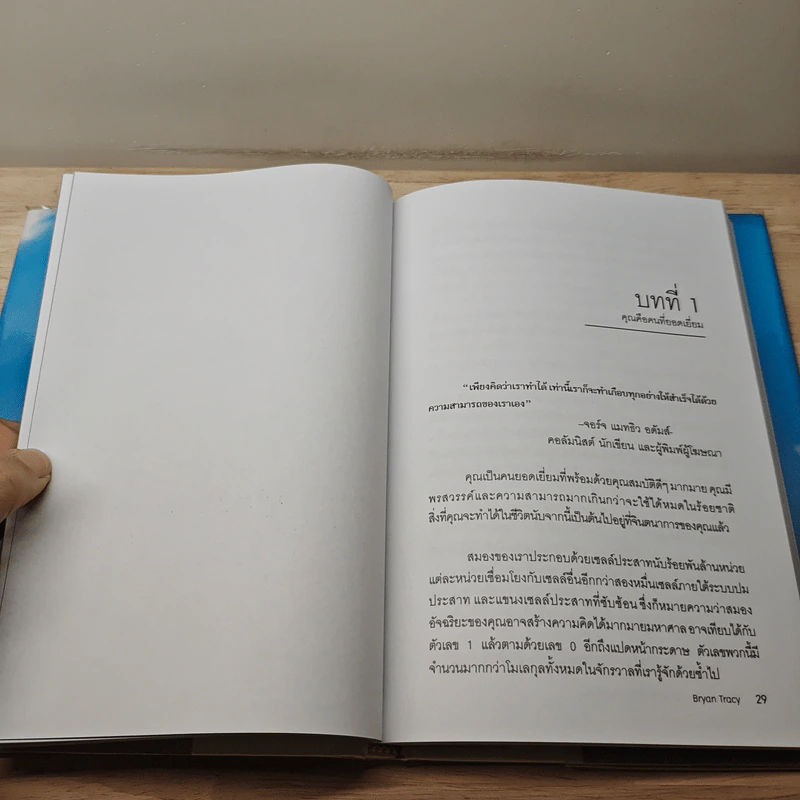 บทที่ 1
คุณคือคนที่ยอดเยี่ยม
“เพียงคิดว่าเราทำได้ เท่านี้เราก็จะทำเกือบทุกอย่างให้สำเร็จได้ด้วย
ความสามารถของเราเอง”
-จอร์จ แมทธิว อดัมส์-
คอลัมนิสต์ นักเขียน และผู้พิมพ์ผู้โฆษณา
คุณเป็นคนยอดเยี่ยมที่พร้อมด้วยคุณสมบัติดีๆ มากมาย คุณมี
พรสวรรค์และความสามารถมากเกินกว่าจะใช้ได้หมดในร้อยชาติ
สิ่งที่คุณจะทำได้ในชีวิตนับจากนี้เป็นต้นไปอยู่ที่จินตนาการของคุณแล้ว
สมองของเราประกอบด้วยเซลล์ประสาทนับร้อยพันล้านหน่วย
แต่ละหน่วยเชื่อมโยงกับเซลล์อื่นอีกกว่าสองหมื่นเซลล์ภายใต้ระบบปม
ประสาท และแขนงเซลล์ประสาทที่ซับซ้อน ซึ่งก็หมายความว่าสมอง
อัจฉริยะของคุณอาจสร้างความคิดได้มากมายมหาศาล อาจเทียบได้กับ
ตัวเลข 1 แล้วตามด้วยเลข 0 อีกถึงแปดหน้ากระดาษ ตัวเลขพวกนี้มี
จำนวนมากกว่าโมเลกุลทั้งหมดในจักรวาลที่เรารู้จักด้วยซ้ำไป
Bryan Tracy 29